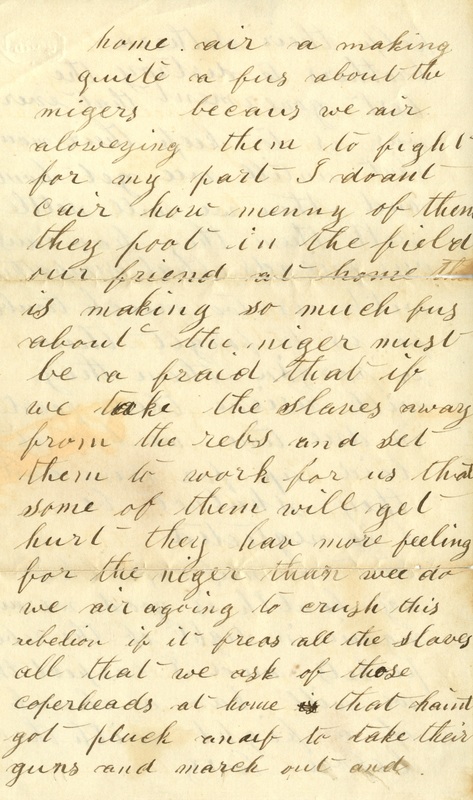 home. air a making
quite a fus about the
nigers becaus we air
aloweying them to fight
for my part I doant
cair how menny of them
they poot in the field
our friend at home
is making so much fus
about the niger must
be a fraid that if
we take the slaves away
from the rebs and set
them to work for us that
some of them will get
hurt they hav more feeling
for the niger than wee do
we air agoing to crush this
rebelion if it freas all the slaves
all that we ask of those
coperheads at home that haint
got pluck anauf to take their
guns and march out and